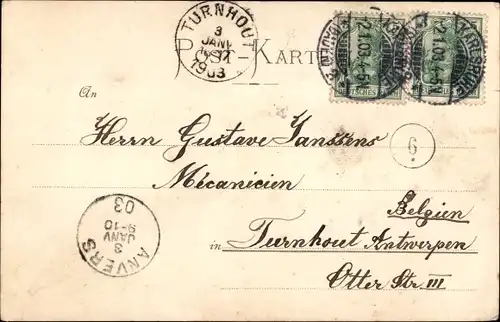 TURNHOUT
3
JANV
1903
POST-KARTE
KARLSRUHE
2.1.03.4-5N
DEUTSCHES
An
Herrn Gustave Janssens
6
Mécanicien
Belgien
in Turnhout Antwerpen
Otter Str. III
ANVERS
3
JANV
9-10
03